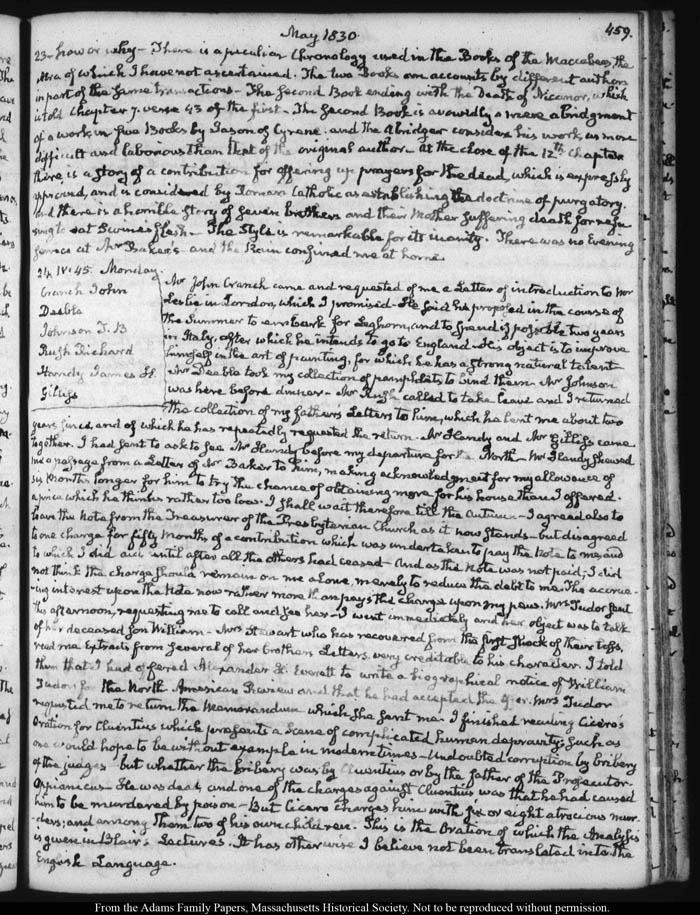 May 1830.
459.
23. how or why – There is a peculiar Chronology used in the Books of the Maccabees, the
Æra of which I have not ascertained. The two Books are accounts by different authors
in part of the same transactions – The second Book ending with the Death of Nicanor, which
is told Chapter 7. verse 43 of the first – The second Book is avowedly a mere abridgment
of a work in five Books by Jason of Cyrene. and the Abridger considers his work as more
difficult and laborious than that of the original author – at the close of the 12th Chapter
there is a story of a contribution for offering up prayers for the dead, which is expressly
approved, and is considered by Roman Catholic as establishing the doctrine of purgatory.
and there is a horrible story of seven brothers and their Mother suffering death for refu-
sing to eat Swines flesh – The Style is remarkable for its inanity. There was no Evening
service at Mr Baker's and the Rain confined me at home.
24. IV:45. Monday.
Cranch John
Deeble
Johnson J. B
Rush Richard
Handy James H.
Gilliss
Mr John Cranch came and requested of me a Letter of introduction to Mr
Leslie in London, which I promised – He said he proposed in the course of
the Summer to embark for Leghorn, and to spend if possible two years
in Italy, after which he intends to go to England – His object is to improve
himself in the art of painting, for which he has a strong natural talent –
Mr Deeble took my collection of pamphlets to bind them – Mr Johnson
was here before dinner – Mr Rush called to take leave and I returned
the collection of my father's Letters to him, which he lent me about two
years since, and of which he has repeatedly requested the return. Mr Handy and Mr Gilliss came
together. I had sent to ask to see Mr Handy before my departure for the North – Mr Handy shewed
me a passage from a Letter of Mr Baker to him, making acknowledgment for my allowance of
six Months longer for him to try the chance of obtaining more for his house than I offered.
a price which he thinks rather too low. I shall wait therefore till the Autumn – I agreed also to
leave the Note from the Treasurer of the Presbyterian Church as it now stands – but disagreed
to one charge for fifty Months of a contribution which was undertaken to pay the Note to me, and
to which I did until after all the others had ceased – And as the Note was not paid, I did
not think the charge should remain on me alone, merely to reduce the debt to me. The accru-
ing interest upon the Note now rather more than pays the charge upon my pew. Mrs Tudor sent
this afternoon, requesting me to call and see her – I went immediately and her object was to talk
of her deceased Son William – Mrs Stewart who has recovered from the first shock of their loss,
read me Extracts from several of her brother's Letters, very creditable to his character. I told
them that I had offered Alexander H. Everett to write a biographical notice of William
Tudor for the North American Review and that he had accepted the offer. Mrs Tudor
requested me to return the Memorandum which she sent me. I finished reading Cicero's
Oration for Cluentius which presents a scene of complicated human depravity, such as
one would hope to be without example in modern times – Undoubted corruption by bribery
of the judges – but whether the bribery was by Cluentius or by the father of the Prosecutor
Oppianicus – He was dead, and one of the charges against Cluentius was that he had caused
him to be murdered by poison – But Cicero charges him with six or eight atrocious mur-
ders; and among them two of his own children. This is the Oration of which the Analysis
is given in Blair's Lectures. It has otherwise I believe not been translated into the
English Language.
From the Adams Family Papers, Massachusetts Historical Society. Not to be reproduced without permission.